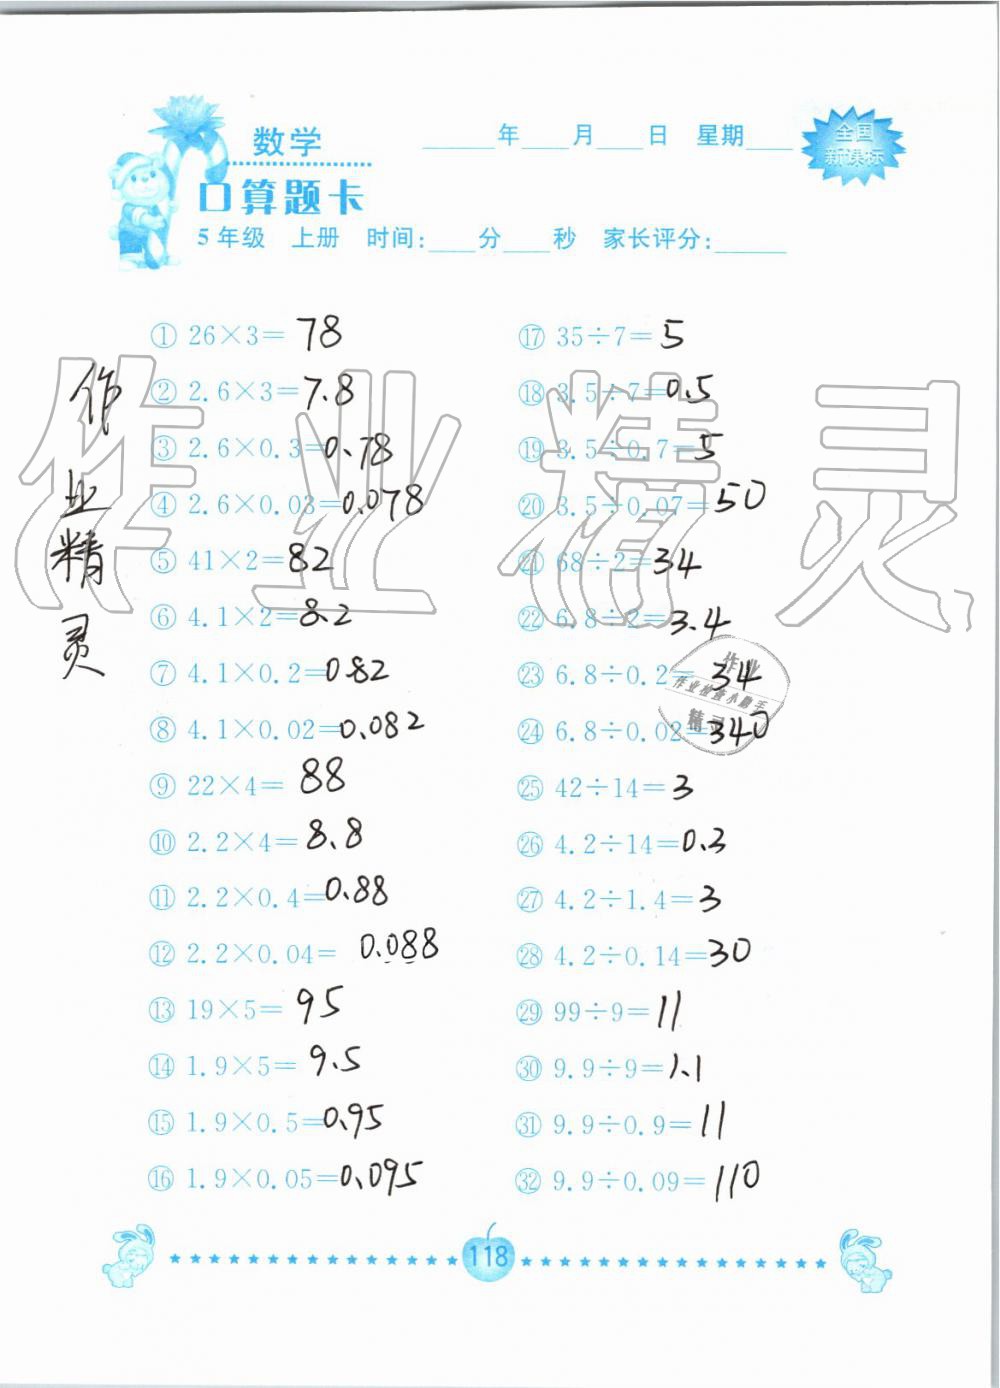 数学
口算题卡
____年____月____日 星期____
全国
新课标
5年级 上册 时间:____分____秒 家长评分:____
作业精灵
① 26×3=78
② 2.6×3=7.8
③ 2.6×0.3=0.78
④ 2.6×0.03=0.078
⑤ 41×2=82
⑥ 4.1×2=8.2
⑦ 4.1×0.2=0.82
⑧ 4.1×0.02=0.082
⑨ 22×4=88
⑩ 2.2×4=8.8
⑪ 2.2×0.4=0.88
⑫ 2.2×0.04=0.088
⑬ 19×5=95
⑭ 1.9×5=9.5
⑮ 1.9×0.5=0.95
⑯ 1.9×0.05=0.095
⑰ 35÷7=5
⑱ 3.5÷7=0.5
⑲ 3.5÷0.7=5
⑳ 3.5÷0.07=50
㉑ 68÷2=34
㉒ 6.8÷2=3.4
㉓ 6.8÷0.2=34
㉔ 6.8÷0.02=340
㉕ 42÷14=3
㉖ 4.2÷14=0.3
㉗ 4.2÷1.4=3
㉘ 4.2÷0.14=30
㉙ 99÷9=11
㉚ 9.9÷9=1.1
㉛ 9.9÷0.9=11
㉜ 9.9÷0.09=110
作业精灵
作业
作业检查小助手
精灵
118